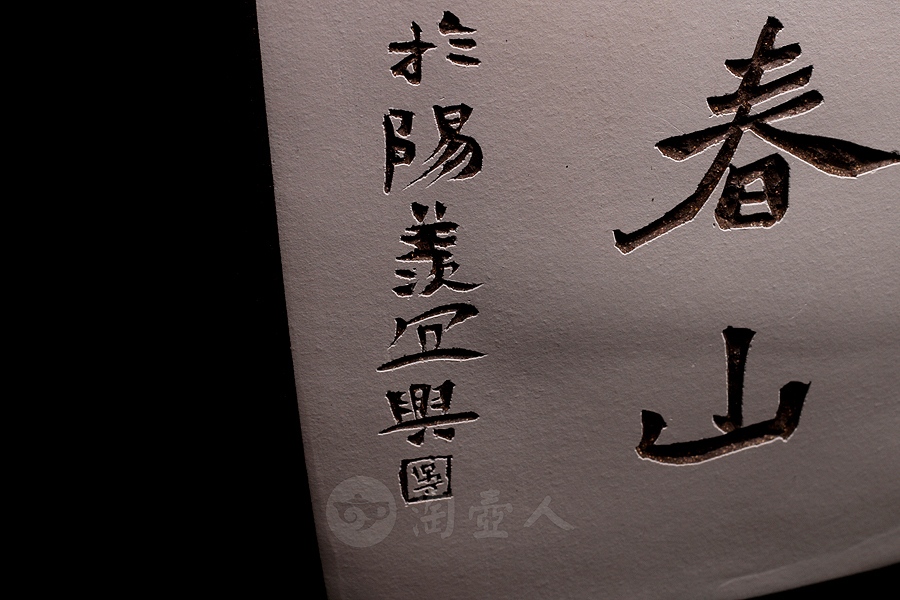 春山
於陽羨宜興
淘壺人